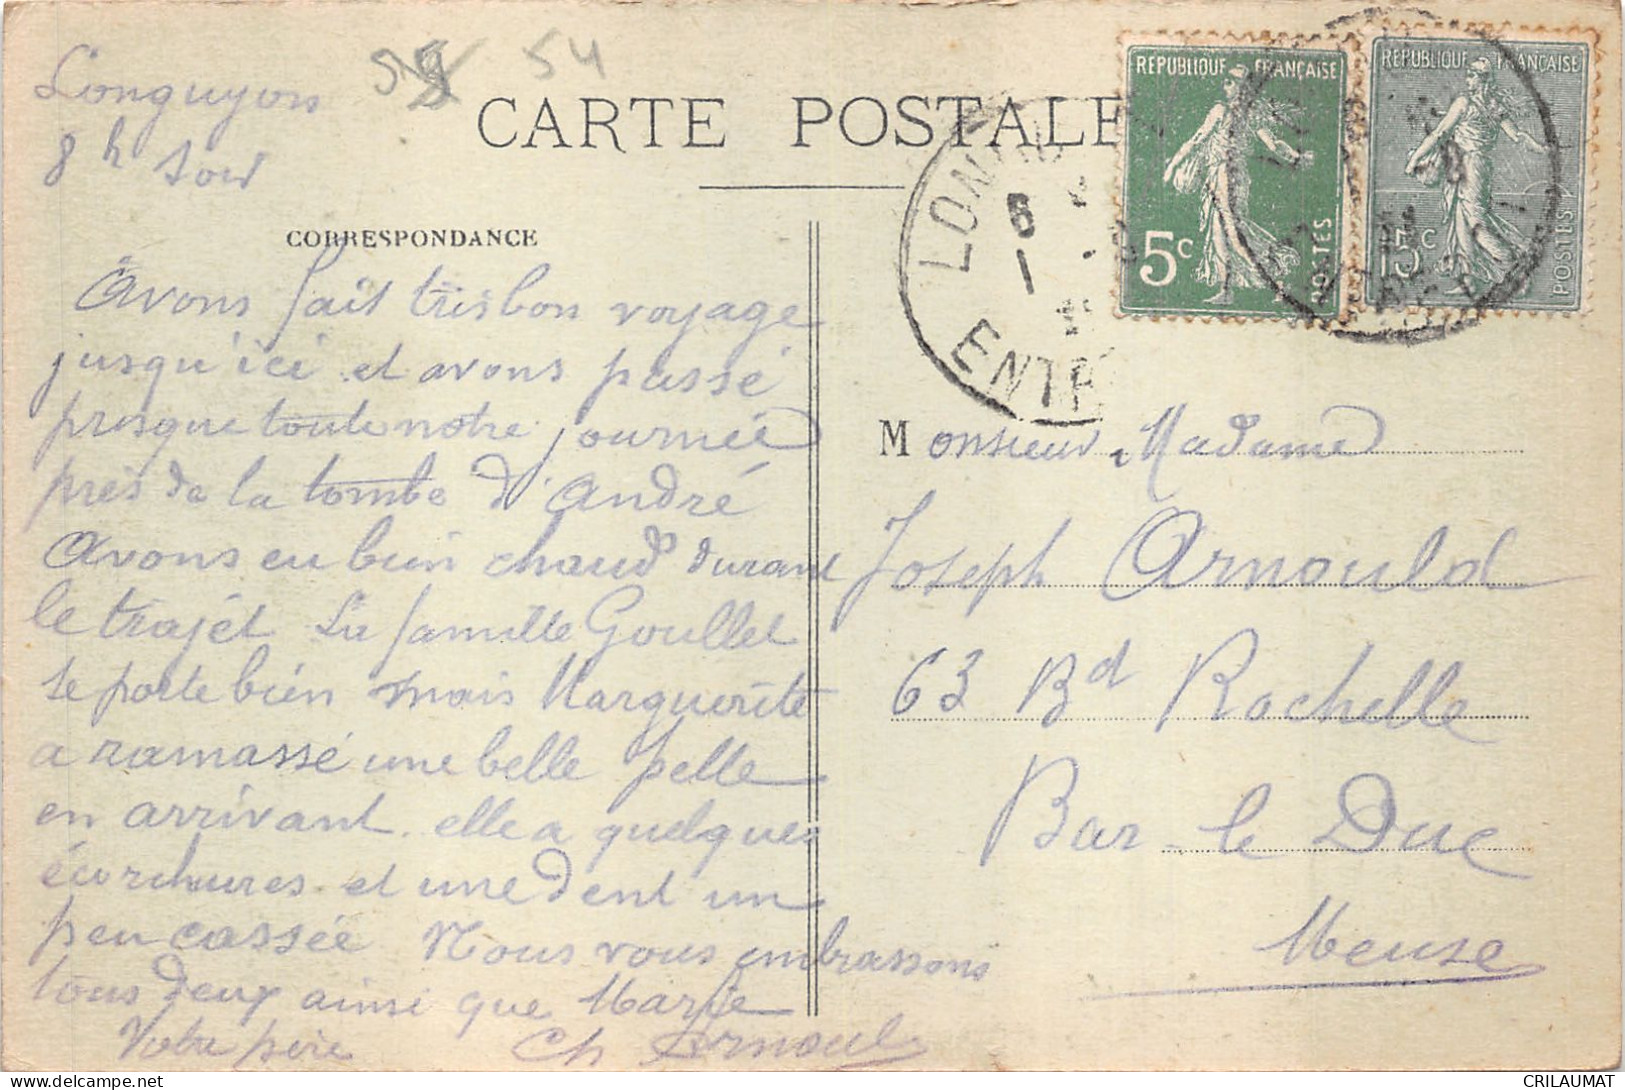 Longuyon
8 h soir
59 54
CARTE POSTALE
CORRESPONDANCE
Avons fait très bon voyage
jusqu'ici et avons passé
presque toute notre journée
près de la tombe d'André
Avons eu bien chaud durant
le trajet La famille Goullet
se porte bien mais Marguerite
a ramassé une belle pelle
en arrivant. elle a quelques
écorchures et une dent un
peu cassée Nous vous embrassons
tous deux ainsi que Marje
Votre père Ch Arnould
REPUBLIQUE FRANÇAISE
5c
POSTES
REPUBLIQUE FRANÇAISE
15c
POSTES
Monsieur, Madame
Joseph Arnould
63 Bd Rochelle
Bar-le Duc
Meuse
CRILAUMAT